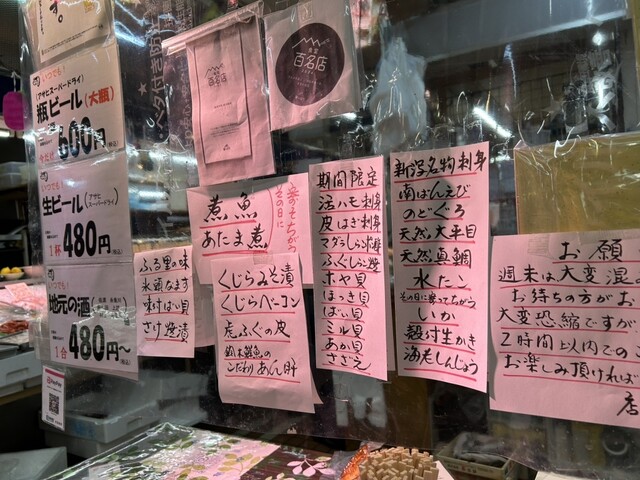 す。
いつでも!
(アサヒスーパードライ)
瓶ビール(大瓶)
600円
いつでも!
生ビール
(アサヒスーパードライ)
1杯 480円
いつでも!
地元の酒
1合 480円~
百名店
ふる里の味
氷頭なます
味付ばい貝
さけ焼漬
煮魚
あたま煮
その日に
くじらみそ漬
くじらベーコン
虎ふぐの皮
こだわりあん肝
期間限定
活ハモ刺身
皮はぎ刺身
マダラしらこ
ふぐしらこ
ホヤ貝
ほっき貝
ばい貝
ミル貝
あか貝
さざえ
新潟名物刺身
南ばんえび
のどぐろ
天然大平目
天然真鯛
水たこ
その日に寄ってちがう
いか
殻付生かき
海老しんじょう
お願
週末は大変混
お待ちの方がお
大変恐縮ですが
2時間以内でのご
お楽しみ頂ければ
店
PayPay